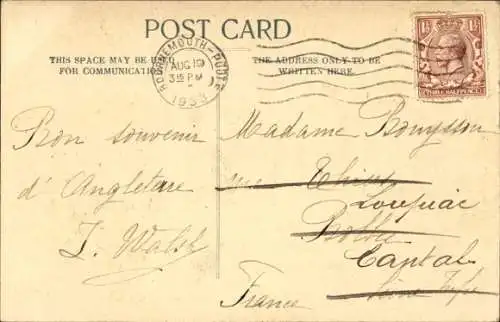 POST CARD
THIS SPACE MAY BE USED
FOR COMMUNICATION
THE ADDRESS ONLY TO BE
WRITTEN HERE.
BOURNEMOUTH-POOLE
AUG 19
3 15 PM
1933
1½ 1½
THREE HALFPENCE
Bon souvenir
d'Angleterre
J. Walsh
Madame Bouysson
rue Thiers
Loupiac
Bolbec
Cantal
Seine Infre
France